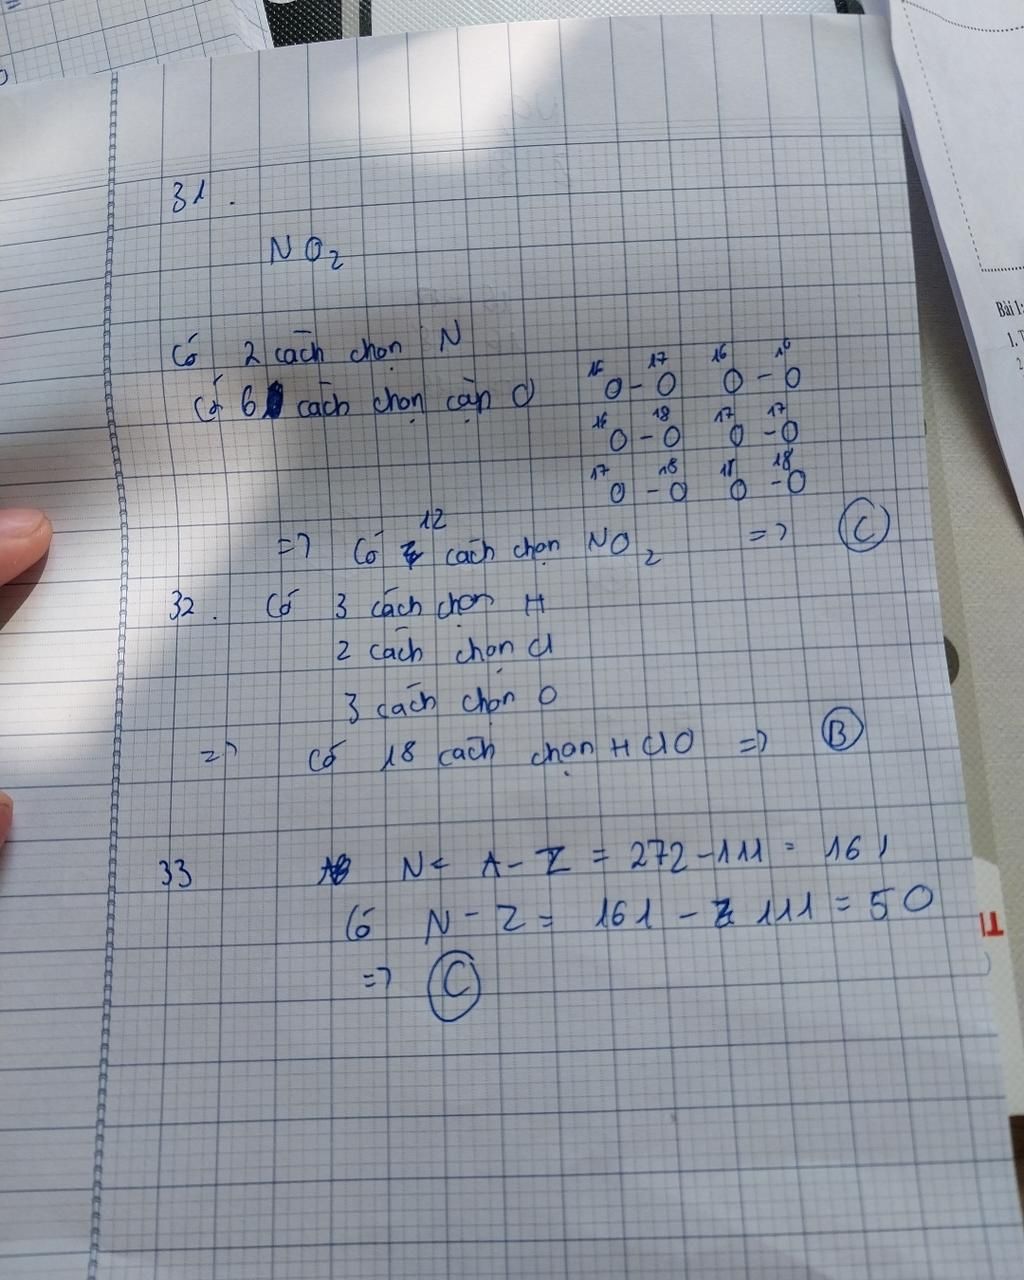 31.
NO₂
Có 2 cách chọn N
Có 6 cách chọn cặp O
¹⁶O - ¹⁷O ¹⁶O - ¹⁶O
¹⁶O - ¹⁸O ¹⁷O - ¹⁷O
¹⁷O - ¹⁸O ¹⁸O - ¹⁸O
=> Có 12 cách chọn NO₂ => C
32. Có 3 cách chọn H
2 cách chọn Cl
3 cách chọn O
=> Có 18 cách chọn HClO => B
33 N = A - Z = 272 - 111 = 161
Có N - Z = 161 - 111 = 50
=> C
Bài 1:
1. T
2